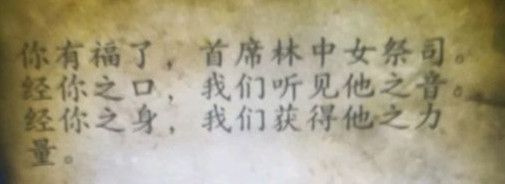 你有福了，首席林中女祭司。
经你之口，我们听见他之音。
经你之身，我们获得他之力
量。